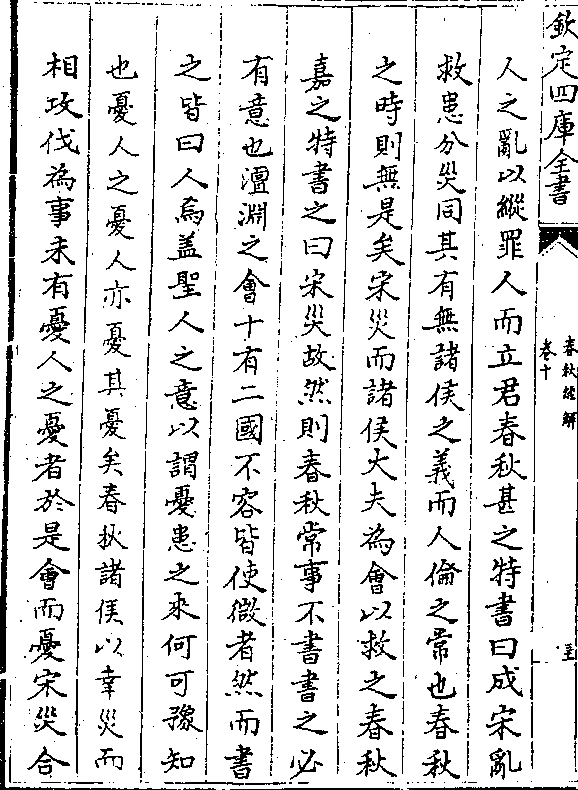 欽定四庫全書
春秋經解
卷十
人之亂以縱罪人而立君春秋甚之特書曰成宋亂
救患分災同其有無諸侯之義而人倫之常也春秋
之時則無是矣宋災而諸侯大夫為會以救之春秋
嘉之特書之曰宋災故然則春秋常事不書書之必
有意也澶淵之會十有二國不容皆使微者然而書
之皆曰人焉盖聖人之意以謂憂患之來何可豫知
也憂人之憂人亦憂其憂矣春秋諸侯以幸災而
相攻伐為事未有憂人之憂者於是會而憂宋災合